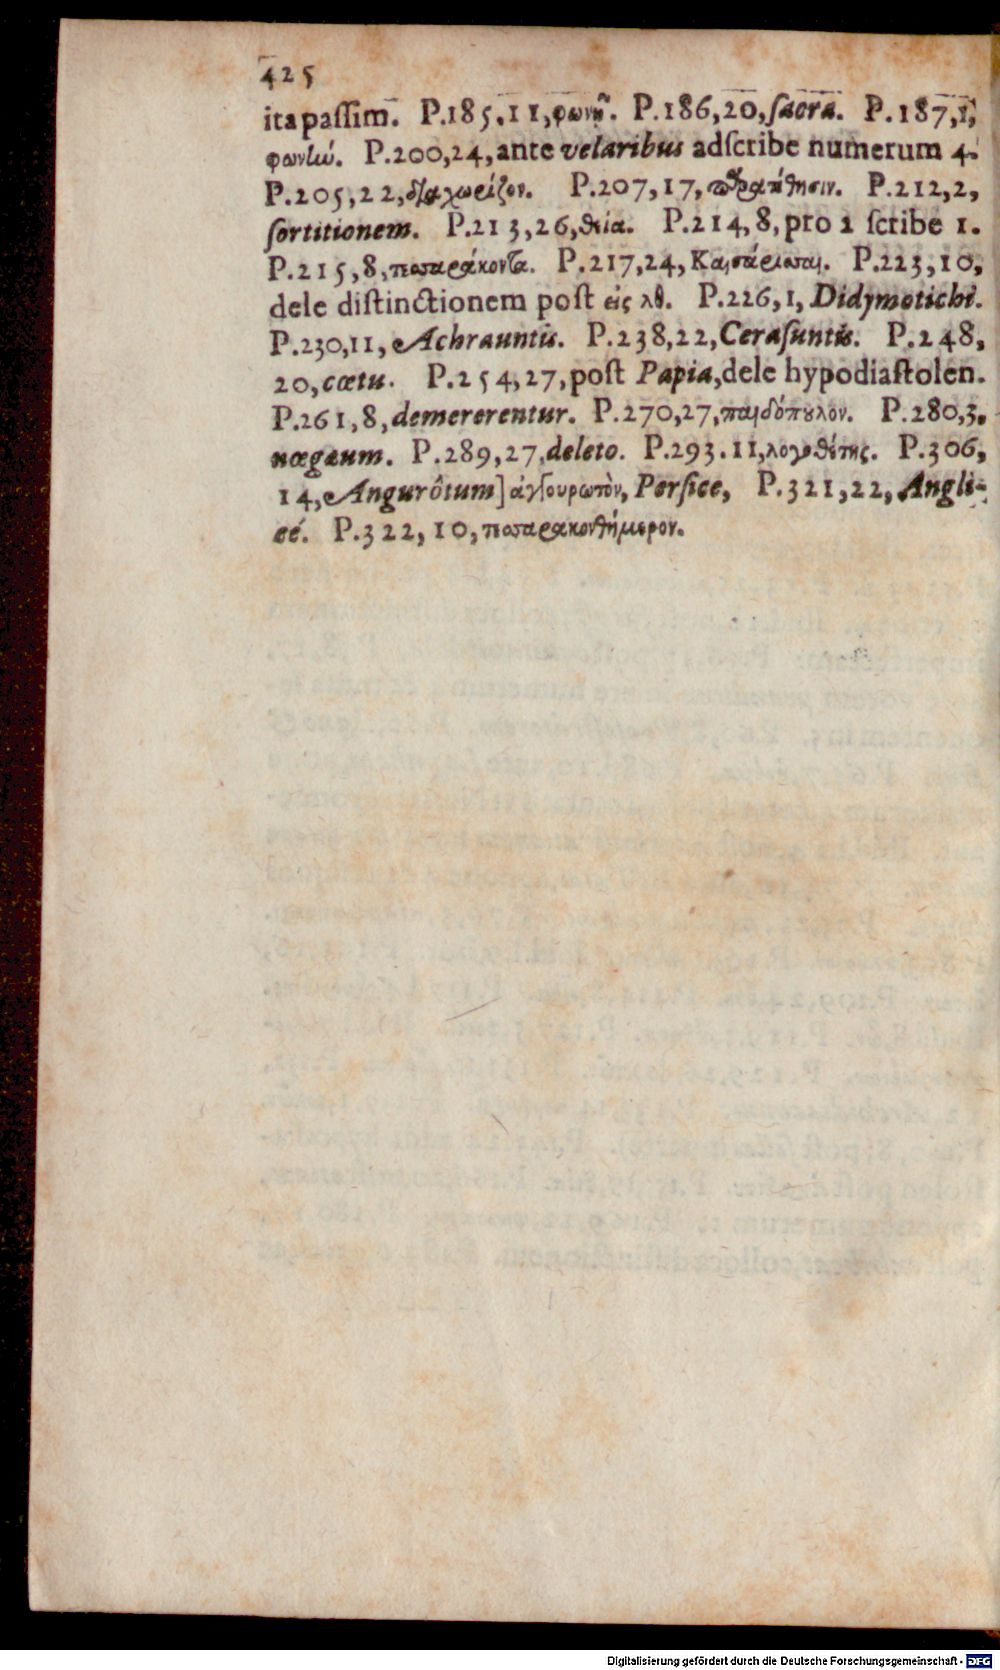 425
ita paſſim. P.185.11,φωνῇ. P.186,20,ſacra. P.187,1,
φωνὴν. P.200,24,ante velaribus adſcribe numerum 4.
P.205,22,διαχωρίζον. P.207,17, P.212,2,
ſortitionem. P.213,26,θεία. P.214,8,pro 2 ſcribe 1.
P.215,8,τεσσαράκοντα. P.217,24, P.223,10,
dele diſtinctionem poſt εἰς λθ. P.226,1, Didymotichi.
P.230,11, Achrauntis. P.238,22,Ceraſuntis. P.248,
20,cœtu. P.254,27,poſt Papia,dele hypodiaſtolen.
P.261,8,demererentur. P.270,27,παιδόπουλον. P.280,3.
nœgeum. P.289,27,deleto. P.293.11,λογοθέτης. P.306,
14,Angurôtum] ἀγγουρωτὸν, Perſice, P.321,22,Angli-
cé. P.322,10,τεσσαρακονθήμερον.
Digitalisierung gefördert durch die Deutsche Forschungsgemeinschaft - DFG